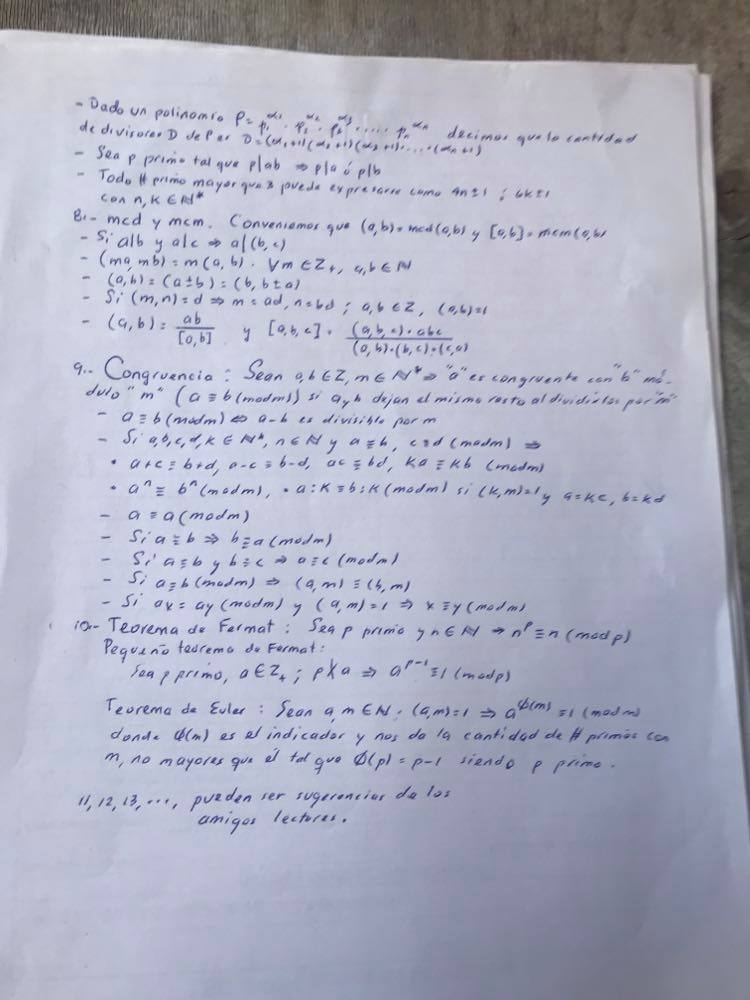 - Dado un polinomio P = p₁^α₁ · p₂^α₂ · p₂^α₃ · .... pₙ^αₙ decimos que la cantidad
de divisores D de P es D = (α₁+1)(α₂+1)(α₃+1)·....·(αₙ+1)
- Sea p primo tal que p|ab ⇒ p|a ó p|b
- Todo # primo mayor que 3 puede expresarse como 4n±1 ; 6k±1
con n, k ∈ ℕ*
8.- mcd y mcm. Conveniamos que (a,b) = mcd(a,b) y [a,b] = mcm(a,b)
- Si a|b y a|c ⇒ a|(b,c)
- (ma, mb) = m(a,b). ∀m ∈ Z₊, a,b ∈ ℕ
- (a,b) = (a±b) = (b, b±a)
- Si (m,n) = d ⇒ m = ad, n = bd ; a,b ∈ Z, (a,b)=1
- (a,b) = ab/[a,b] y [a,b,c] = (a,b,c)·abc/(a,b)·(b,c)·(c,a)
9.- Congruencia : Sean a,b ∈ Z, m ∈ ℕ* ⇒ "a" es congruente con "b" mó-
dulo "m" (a ≡ b(modm)) si a y b dejan el mismo resto al dividirlos por "m"
- a ≡ b(modm) ⇔ a-b es divisible por m
- Si a,b,c,d,k ∈ ℕ*, n ∈ ℕ y a ≡ b, c ≡ d (modm) ⇒
• a+c ≡ b+d, a-c ≡ b-d, ac ≡ bd, ka ≡ kb (modm)
• aⁿ ≡ bⁿ(modm), • a:k ≡ b:k(modm) si (k,m)=1 y a=kc, b=kd
- a ≡ a(modm)
- Si a ≡ b ⇒ b ≡ a(modm)
- Si a ≡ b y b ≡ c ⇒ a ≡ c (modm)
- Si a ≡ b(modm) ⇒ (a,m) ≡ (b,m)
- Si ax = ay (modm) y (a,m) = 1 ⇒ x ≡ y (modm)
10.- Teorema de Fermat : Sea p primo y n ∈ ℕ ⇒ nᵖ ≡ n (mod p)
Pequeño teorema de Fermat:
Sea p primo, a ∈ Z₊ ; p∤a ⇒ a^(p-1) ≡ 1 (modp)
Teorema de Euler : Sean a, m ∈ ℕ · (a,m)=1 ⇒ a^ϕ(m) ≡ 1 (modm)
donde ϕ(m) es el indicador y nos da la cantidad de # primos con
m, no mayores que él tal que ϕ(p) = p-1 siendo p primo.
11, 12, 13, ..., pueden ser sugerencias de los
amigos lectores.